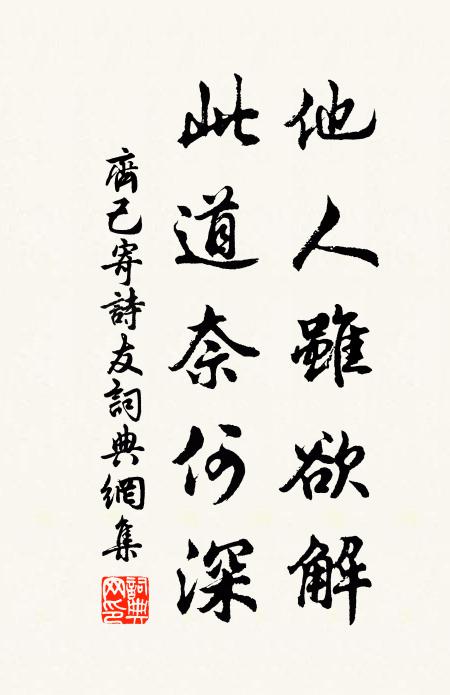 他人雖欲解
此道奈何深
齊己寄詩友詞典網集
詞典
网印